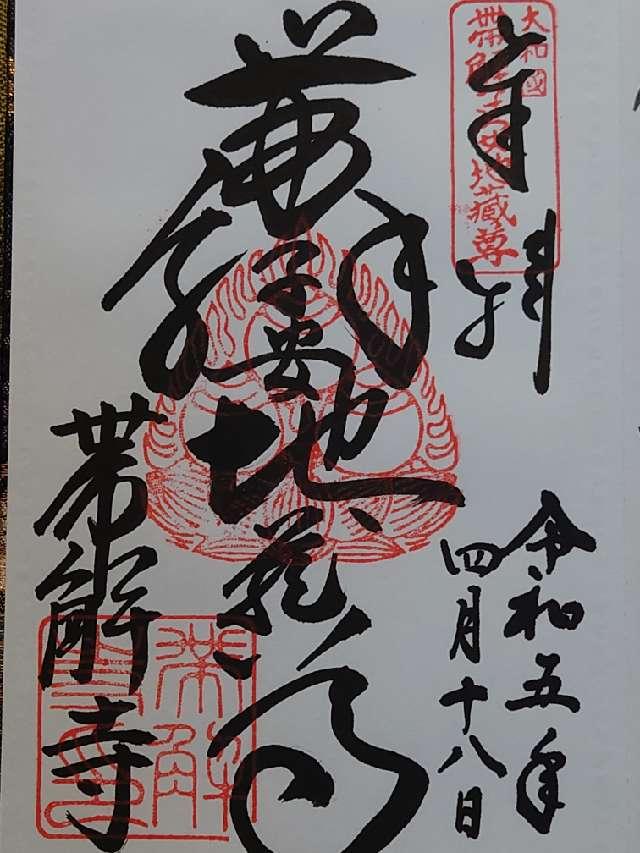 奉拝
大和國
帯解子安地蔵尊
令和五年
四月十八日
帯解子安地蔏尊
帯解寺